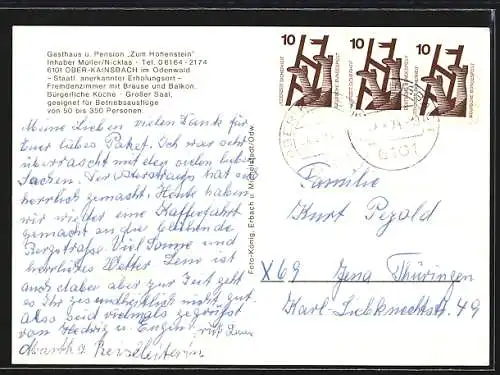 Gasthaus u. Pension „Zum Hohenstein"
Inhaber Müller/Nicklas · Tel. 06164-2174
6101 OBER-KAINSBACH im Odenwald
– Staatl. anerkannter Erholungsort –
Fremdenzimmer mit Brause und Balkon.
Bürgerliche Küche · Großer Saal,
geeignet für Betriebsausflüge
von 50 bis 350 Personen.
Meine Lieben vielen Dank für
Euer liebes Paket. Ich war sehr
überrascht mit den vielen lieben
Sachen. Der hat so
herrlich gemacht. Heute haben
wir wieder eine Kaffeefahrt
gemacht an die blühende
Bergstraße. Viel Sonne und
herrliches Wetter Lene ist
auch dabei aber zur Zeit geht
es Ihr gesundheitlich nicht gut.
Also seid vielmals gegrüßt
von Hedwig u. Eugen
Martha Reiseleiterin
Foto-König, Erbach u. Michelstadt/Odw.
10
10
10
6101
Familie
Kurt Pezold
X69 Jena Thüringen
Karl-Liebknechtstr. 49